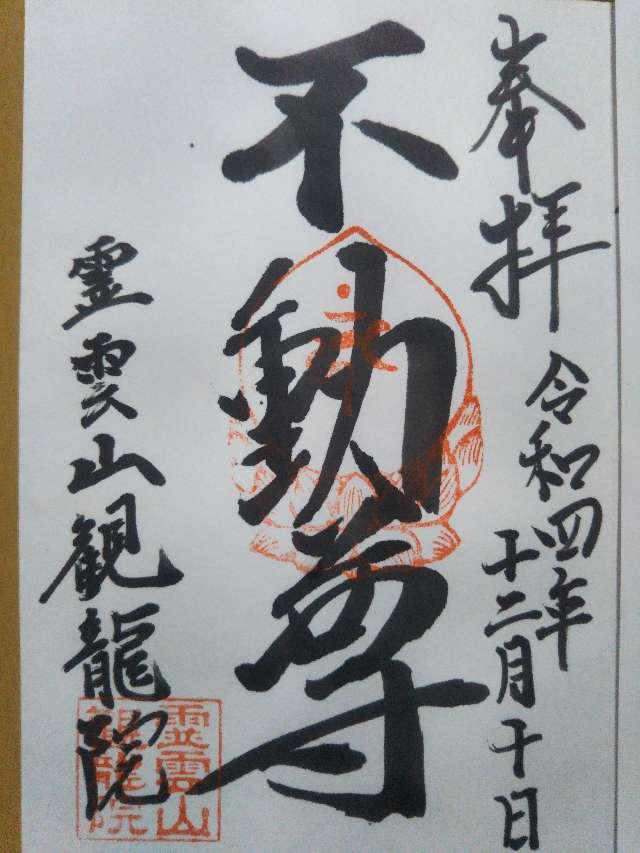 奉拝
令和四年
十二月十日
不動尊
霊雲山観龍院
霊雲山
観龍院